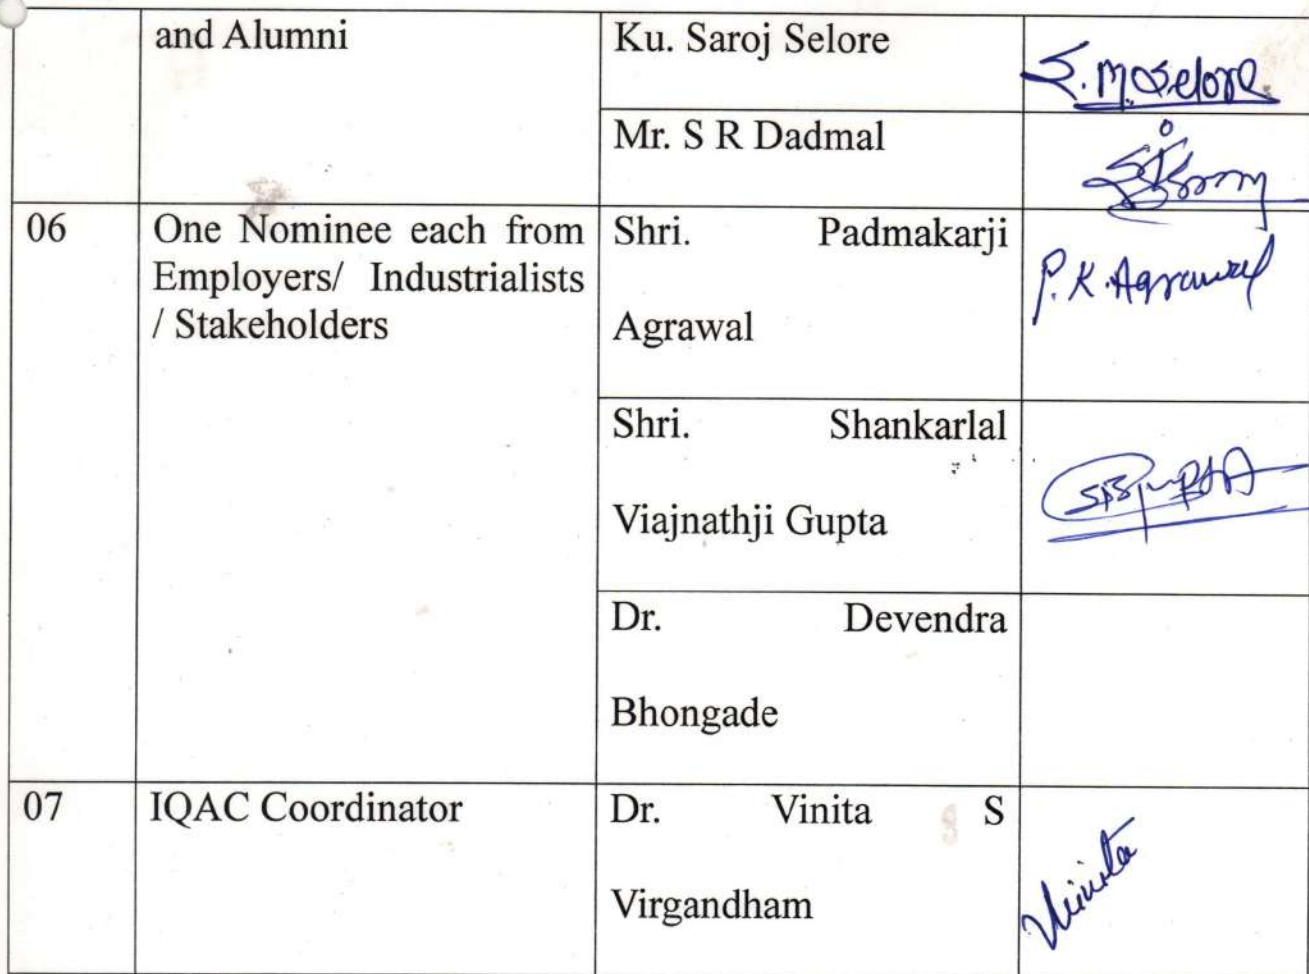 and Alumni
Ku. Saroj Selore
S.M.Selore
Mr. S R Dadmal
06
One Nominee each from
Employers/ Industrialists
/ Stakeholders
Shri. Padmakarji
Agrawal
P.K.Agrawal
Shri. Shankarlal
Viajnathji Gupta
Dr. Devendra
Bhongade
07
IQAC Coordinator
Dr. Vinita S
Virgandham
Vinita